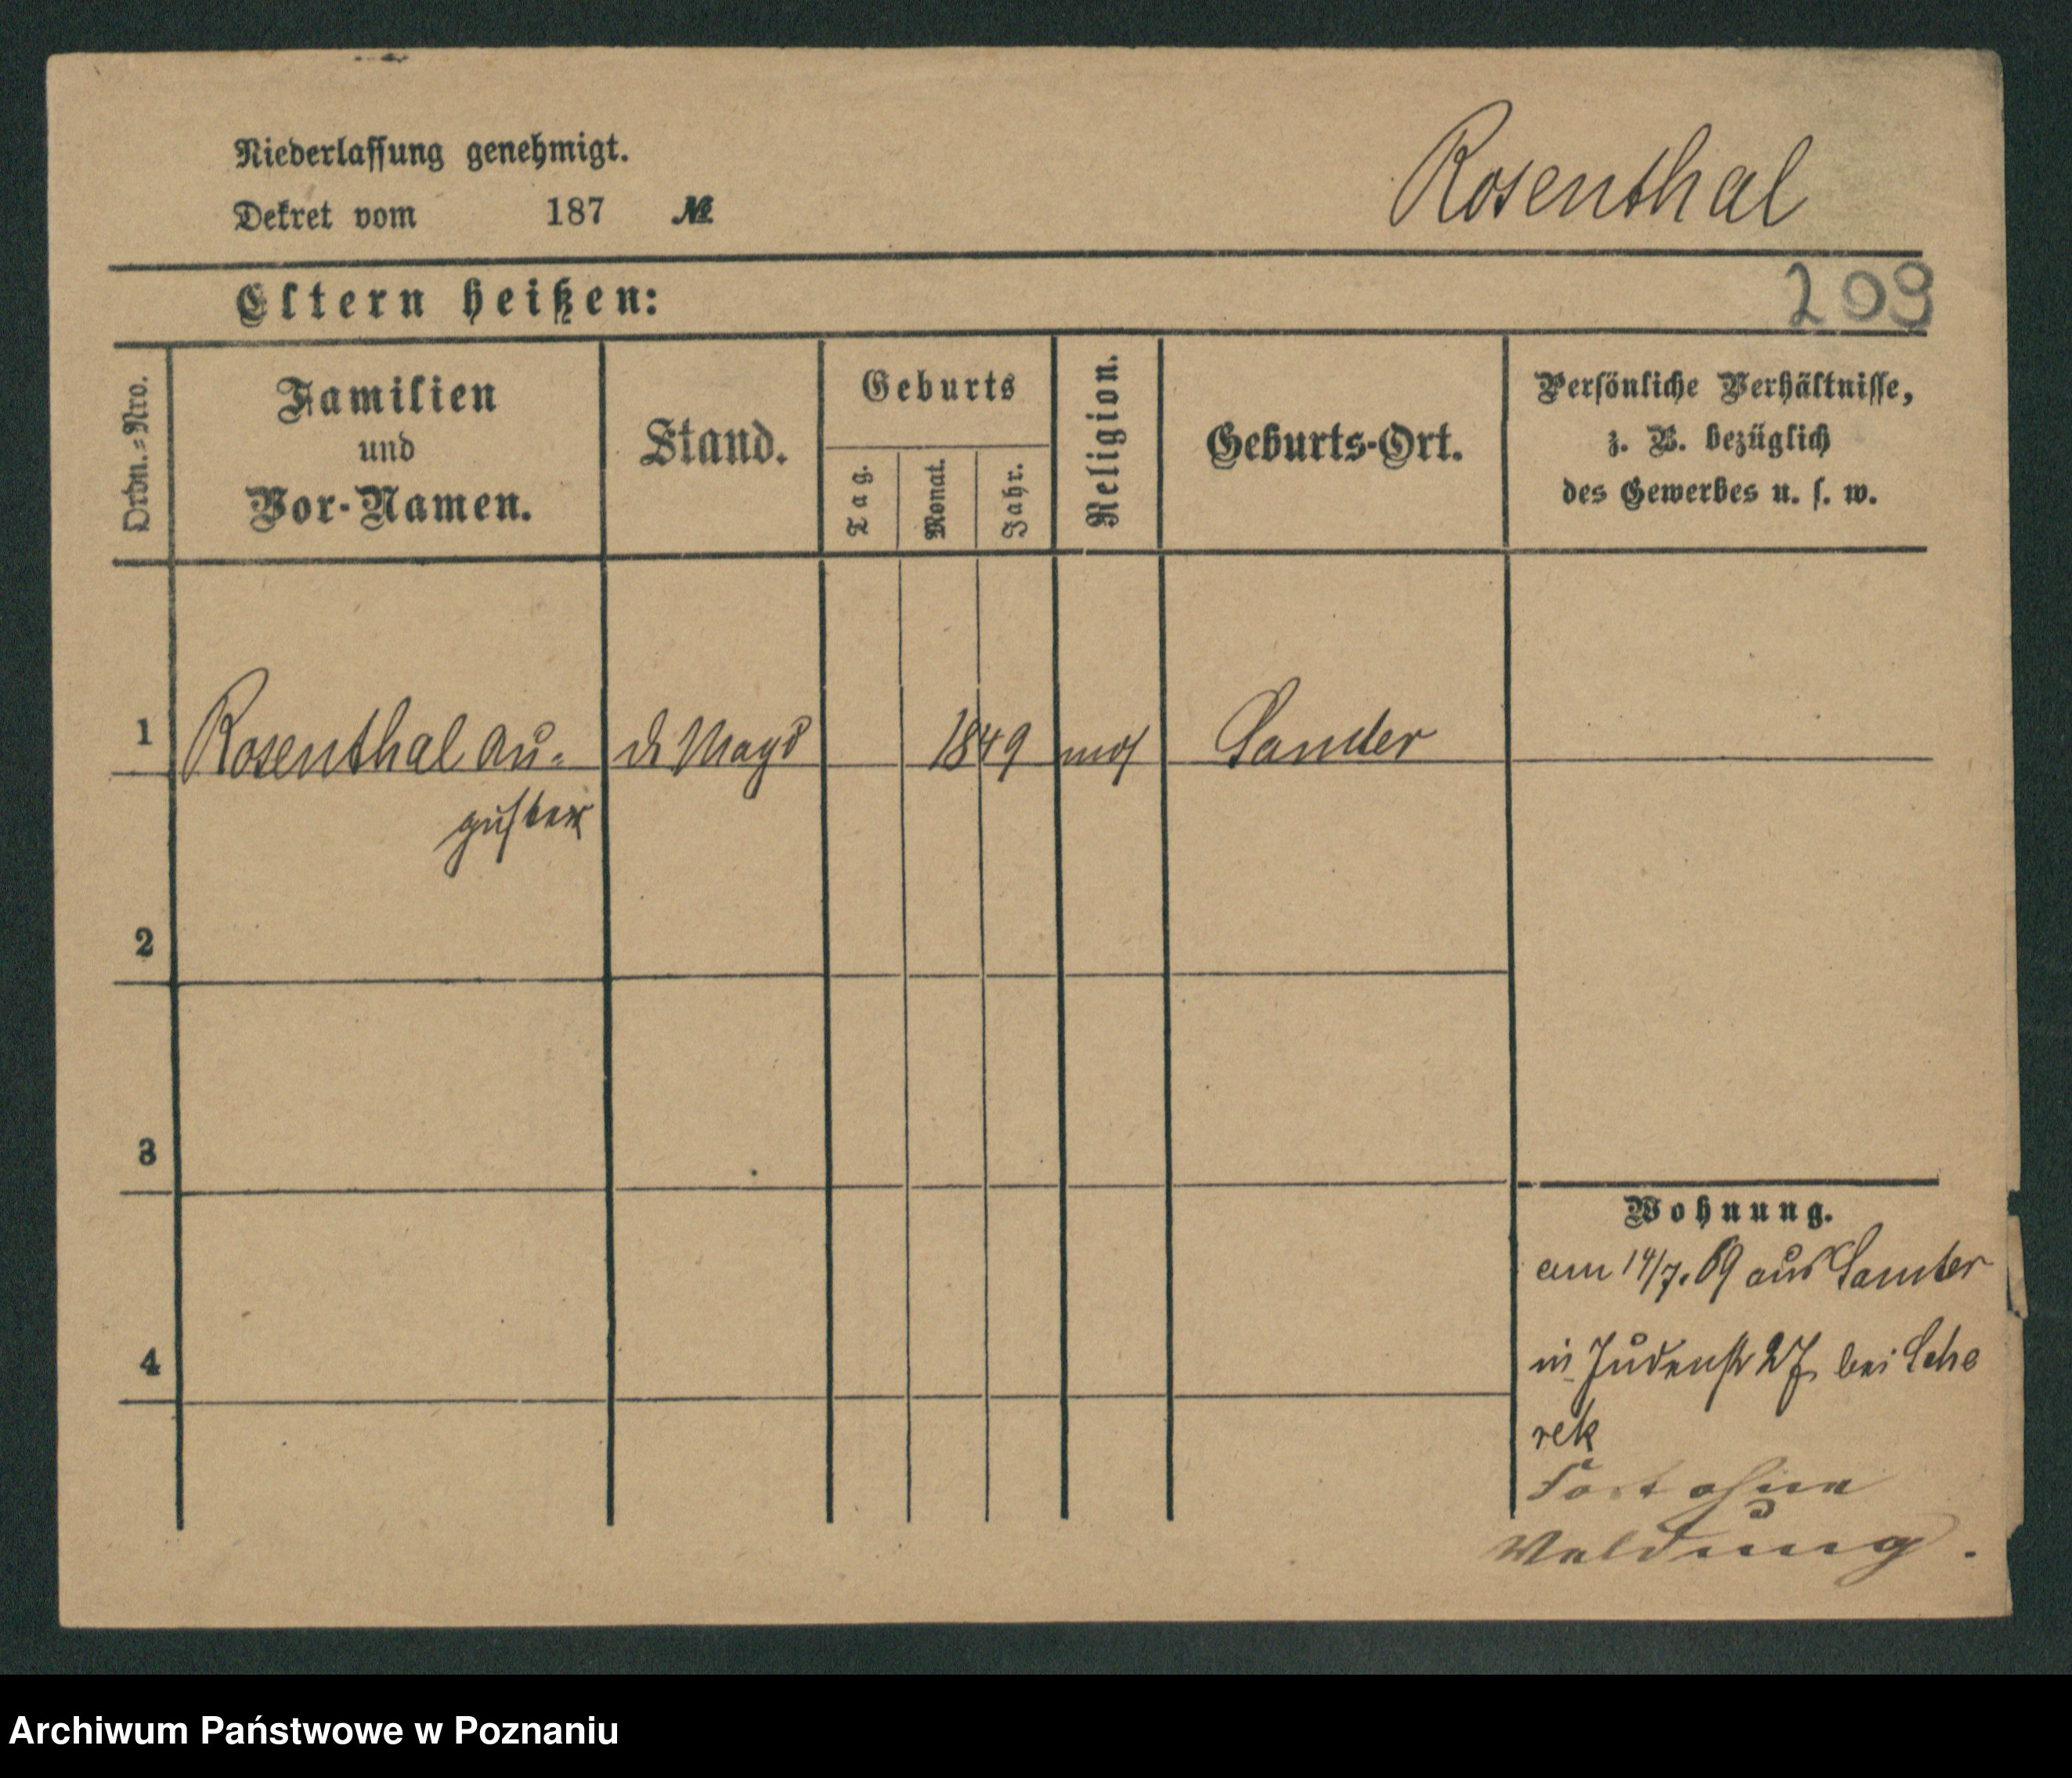 Niederlassung genehmigt.
Dekret vom 187 №
Rosenthal
209
Eltern heißen:
Ordn.=Nro.
Familien
und
Vor-Namen.
Stand.
Geburts
Tag.
Monat.
Jahr.
Religion.
Geburts-Ort.
Persönliche Verhältnisse,
z. B. bezüglich
des Gewerbes u. s. w.
1
Rosenthal Au-
guste
d Magd
1849
mos
Samter
2
3
4
Wohnung.
am 14/7. 69 aus Samter
in Judenstr 27 bei Sche
rek
Fort ohne
Meldung.
Archiwum Państwowe w Poznaniu